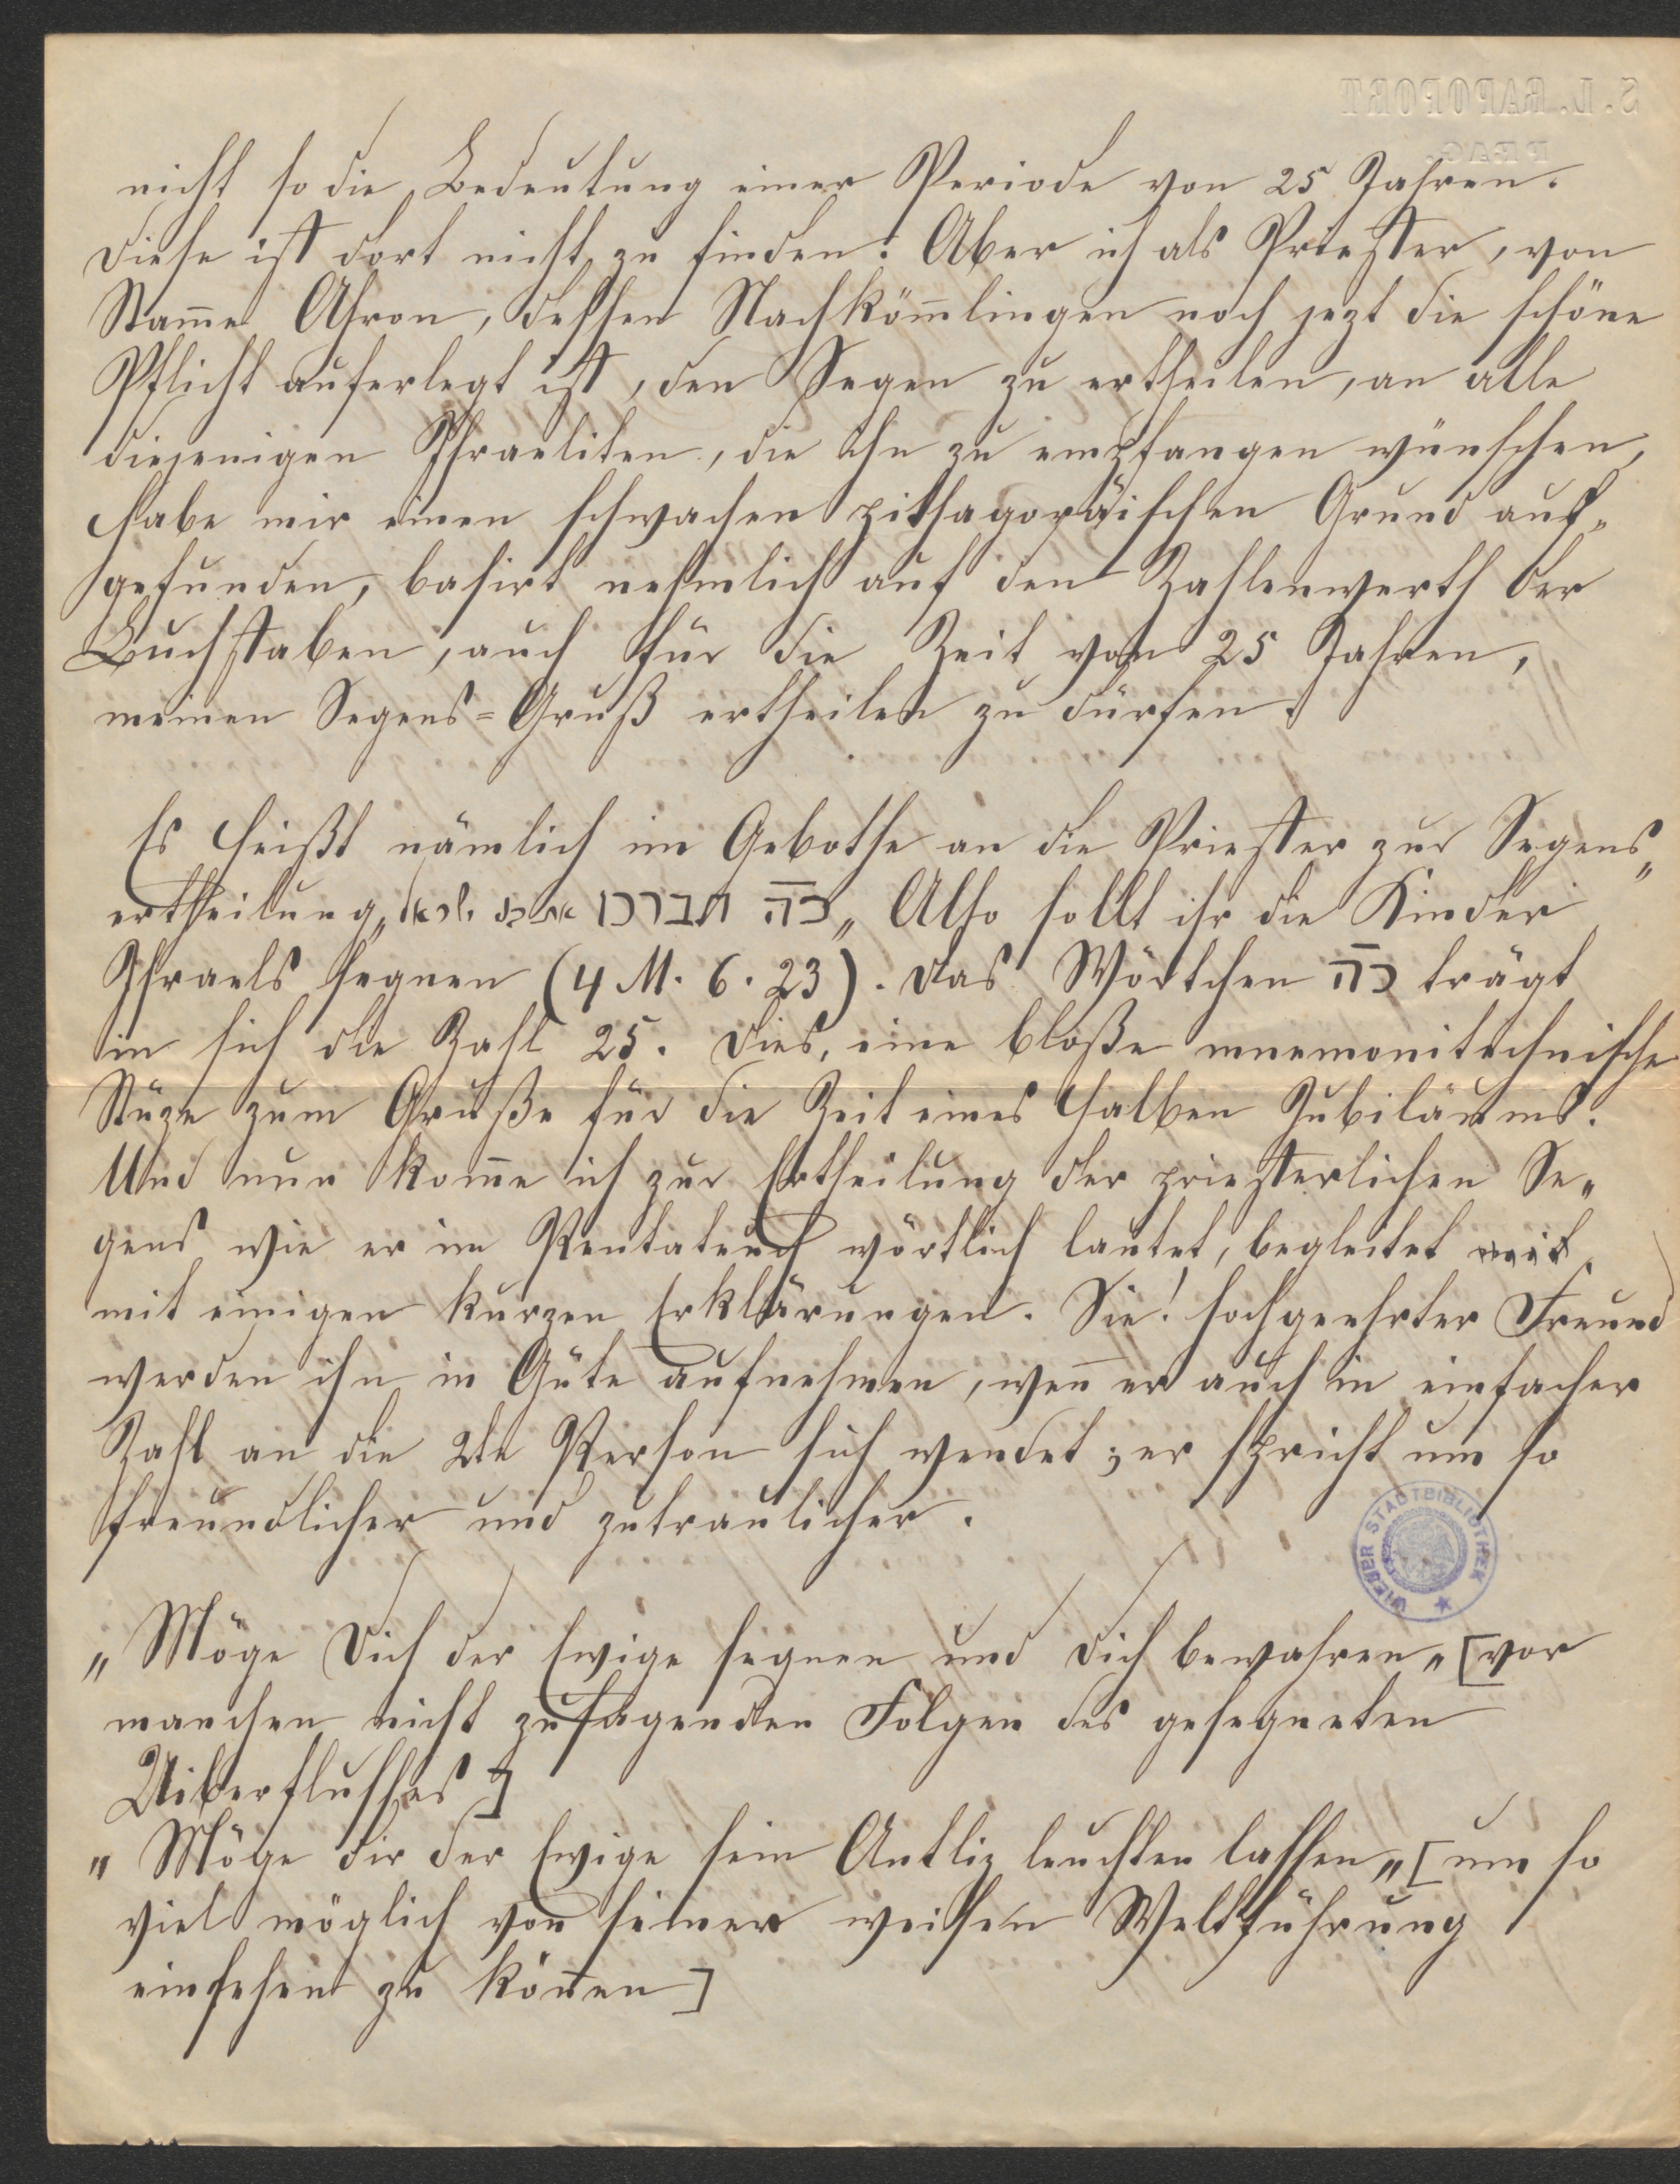 S. L. RAPOPORT
PRAG.
nicht so die Bedeutung einer Periode von 25 Jahren.
Diese ist dort nicht zu finden. Aber ich als Priester, von
Stam̄e Ahron, dessen Nachköm̄lingen noch jezt die schöne
Pflicht auferlegt ist, den Segen zu ertheilen, an alle
diejenigen Israeliten, die ihn zu empfangen wünschen,
habe mir einen schwachen pithagoräischen Grund auf-
gefunden, basirt nehmlich auf den Zahlenwerth der
Buchstaben, auch für die Zeit von 25 Jahren,
meinen Segens-Gruß ertheilen zu dürfen.
Es heißt nämlich im Gebothe an die Priester zur Segens-
ertheilung „כה תברכו את בני ישראל„ Also sollt ihr die Kinder
Israels segnen (4 M. 6. 23). Das Wörtchen כה trägt
in sich die Zahl 25. Dies, eine bloße mnemonitechnische
Stüze zum Gruße für die Zeit eines halben Jubiläums.
Und nun kom̄e ich zur Ertheilung der priesterlichen Se-
gens wie er im Pentateuch wörtlich lautet, begleitet mit
mit einigen kurzen Erklärungen. Sie! hochgeehrter Freund
werden ihn in Güte aufnehmen, wen̄ er auch in einfacher
Zahl an die 2te Person sich wendet; er spricht um so
freundlicher und zutraulicher.
WIENER STADTBIBLIOTHEK
„Möge Dich der Ewige segnen und Dich bewahren„ [vor
manchen nicht zusagenden Folgen des gesegneten
Uiberflusses]
„Möge dir der Ewige sein Antliz leuchten lassen„ [um so
viel möglich von seiner weisen Weltführung
einsehen zu kön̄en]